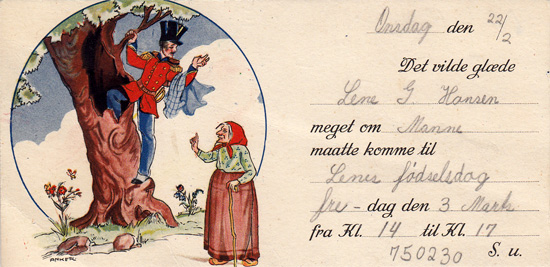 Onsdag den 22/2
Det vilde glæde
Lene G. Hansen
meget om Manne
maatte komme til
Lenes fødselsdag
fre - dag den 3 Marts
fra Kl. 14 til Kl. 17
750230 S. u.
ANKER